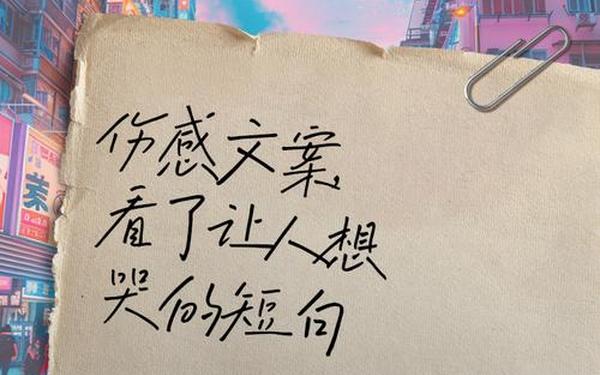 伤感文案,
看了让人想
哭的短句